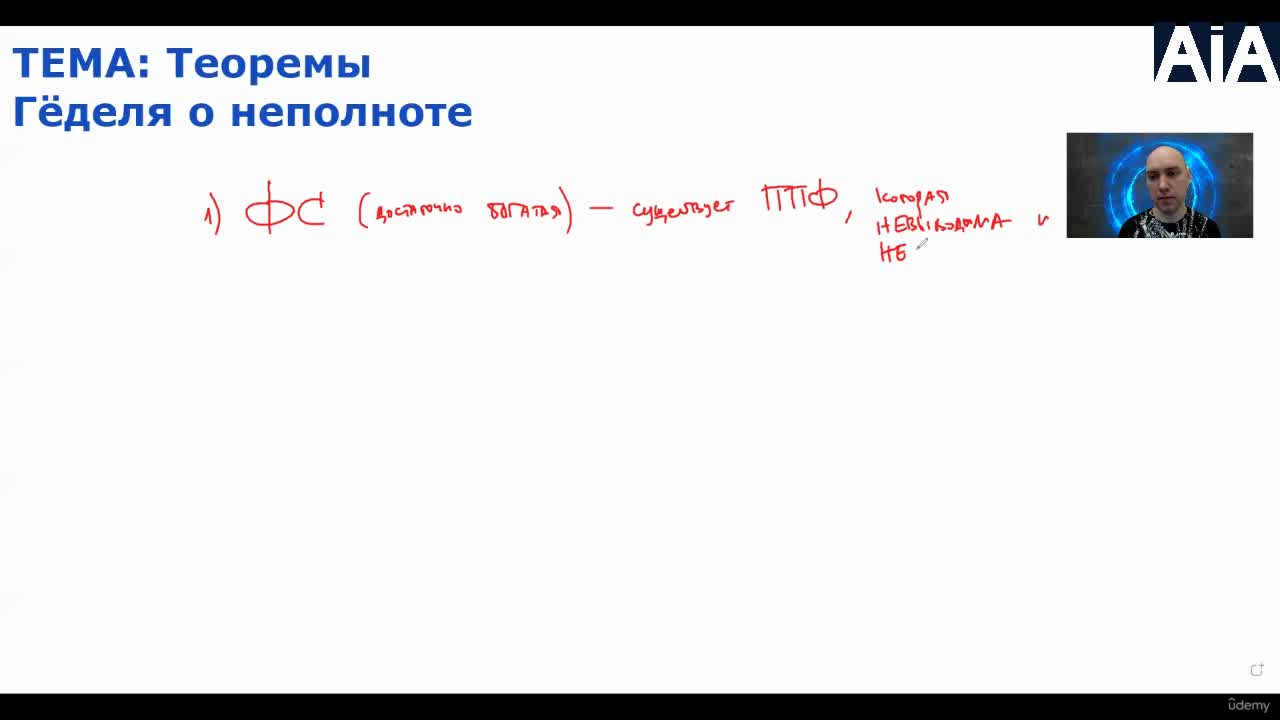 ТЕМА: Теоремы
Гёделя о неполноте
AiA
1) ФС (достаточно богатая) — существует ППФ, которая
невыводима и
НЕ
ûdemy